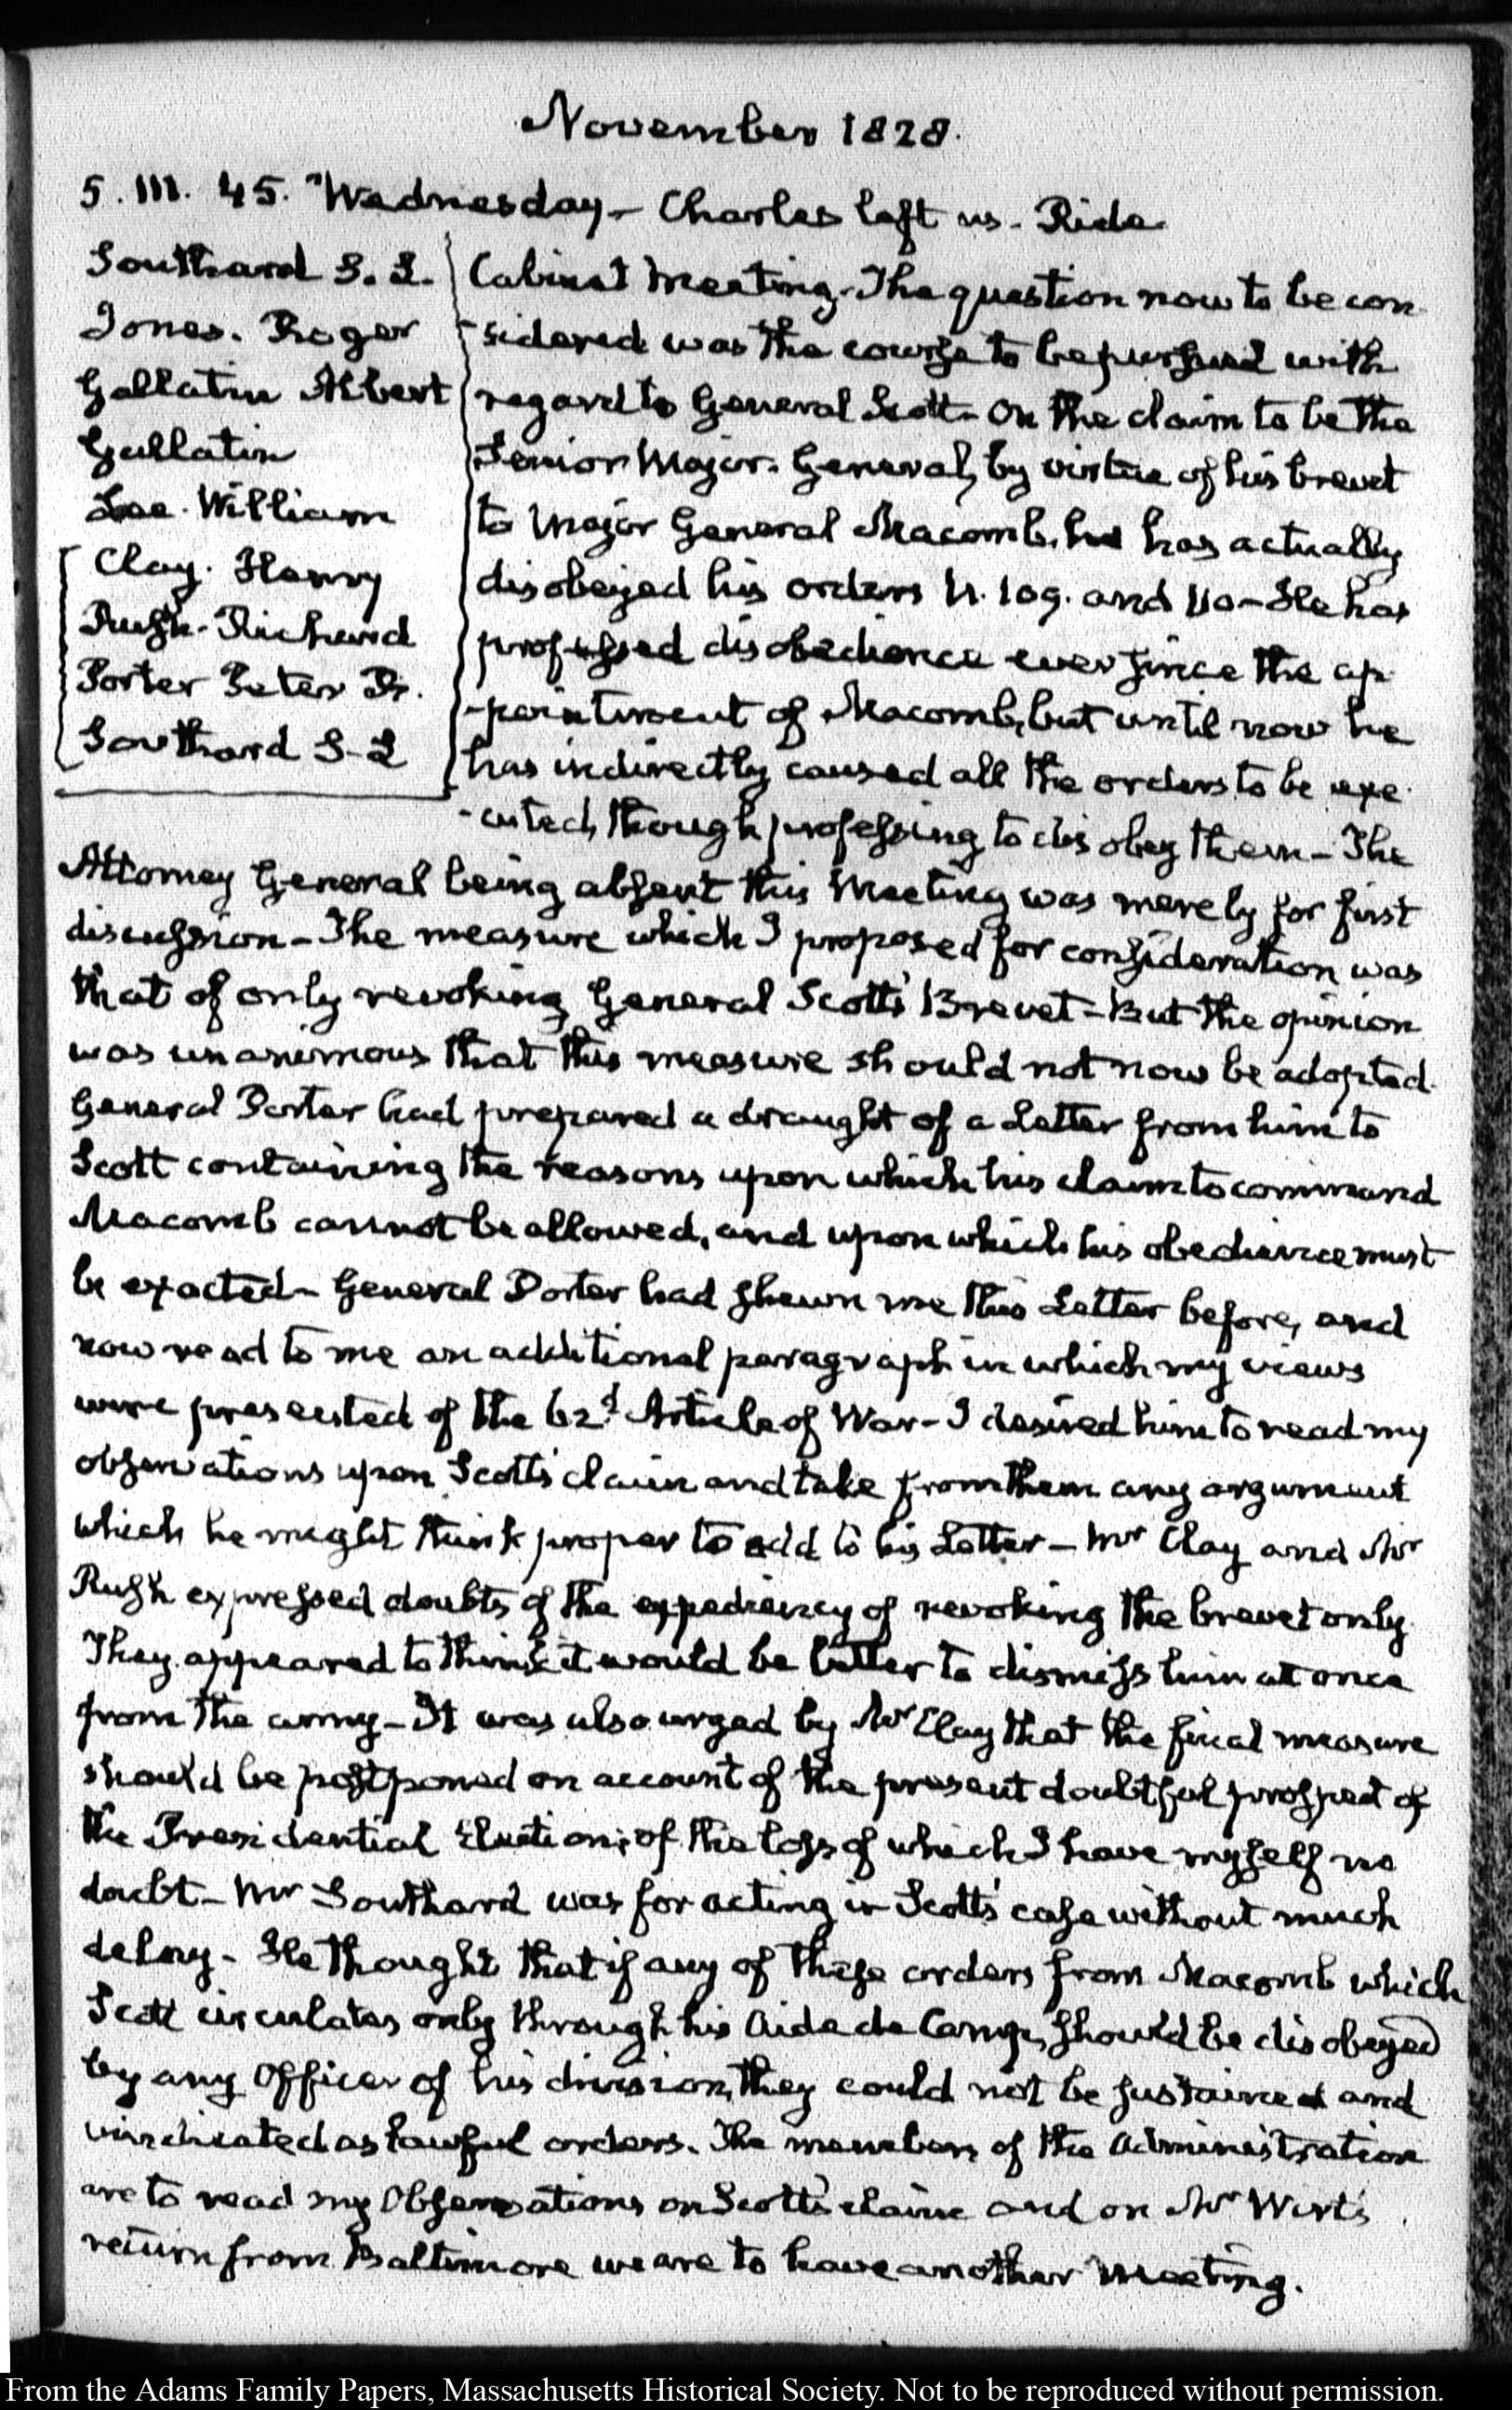 November 1828.
5. III. 45. Wednesday – Charles left us. Ride
Southard S. L.
Jones. Roger
Gallatin Albert
Gallatin
Lee. William
Clay. Henry
Rush. Richard
Porter Peter B.
Southard S-L
Cabinet Meeting. The question now to be con
-sidered was the course to be pursued with
regard to General Scott – On the claim to be the
Senior Major. General, by virtue of his brevet
to Major General Macomb. he has actually
disobeyed his orders N. 109. and 110 – He has
professed disobedience ever since the ap
-pointment of Macomb, but until now he
has indirectly caused all the orders to be exe
-cuted, though professing to disobey them – The
Attorney General being absent this Meeting was merely for first
discussion – The measure which I proposed for consideration was
that of only revoking General Scott's Brevet – But the opinion
was unanimous that this measure should not now be adopted.
General Porter had prepared a draught of a Letter from him to
Scott containing the reasons upon which his claim to command
Macomb cannot be allowed, and upon which his obedience must
be exacted – General Porter had shewn me this Letter before, and
now read to me an additional paragraph in which my views
were presented of the 62d. Article of War – I desired him to read my
observations upon Scott's claim and take from them any argument
which he might think proper to add to his Letter – Mr Clay and Mr
Rush expressed doubts of the expediency of revoking the brevet only.
They appeared to think it would be better to dismiss him at once
from the army – It was also urged by Mr Clay that the final measure
should be postponed on account of the present doubtful prospect of
the Presidential Election; of the loss of which I have myself no
doubt – Mr Southard was for acting in Scott's case without much
delay – He thought that if any of these orders from Macomb which
Scott circulates only through his Aide de Camp, should be disobeyed
by any Officer of his division, they could not be sustained and
vindicated as lawful orders. The members of the Administration
are to read my Observations on Scott's claim and on Mr Wirt's
return from Baltimore we are to have another Meeting.
From the Adams Family Papers, Massachusetts Historical Society. Not to be reproduced without permission.